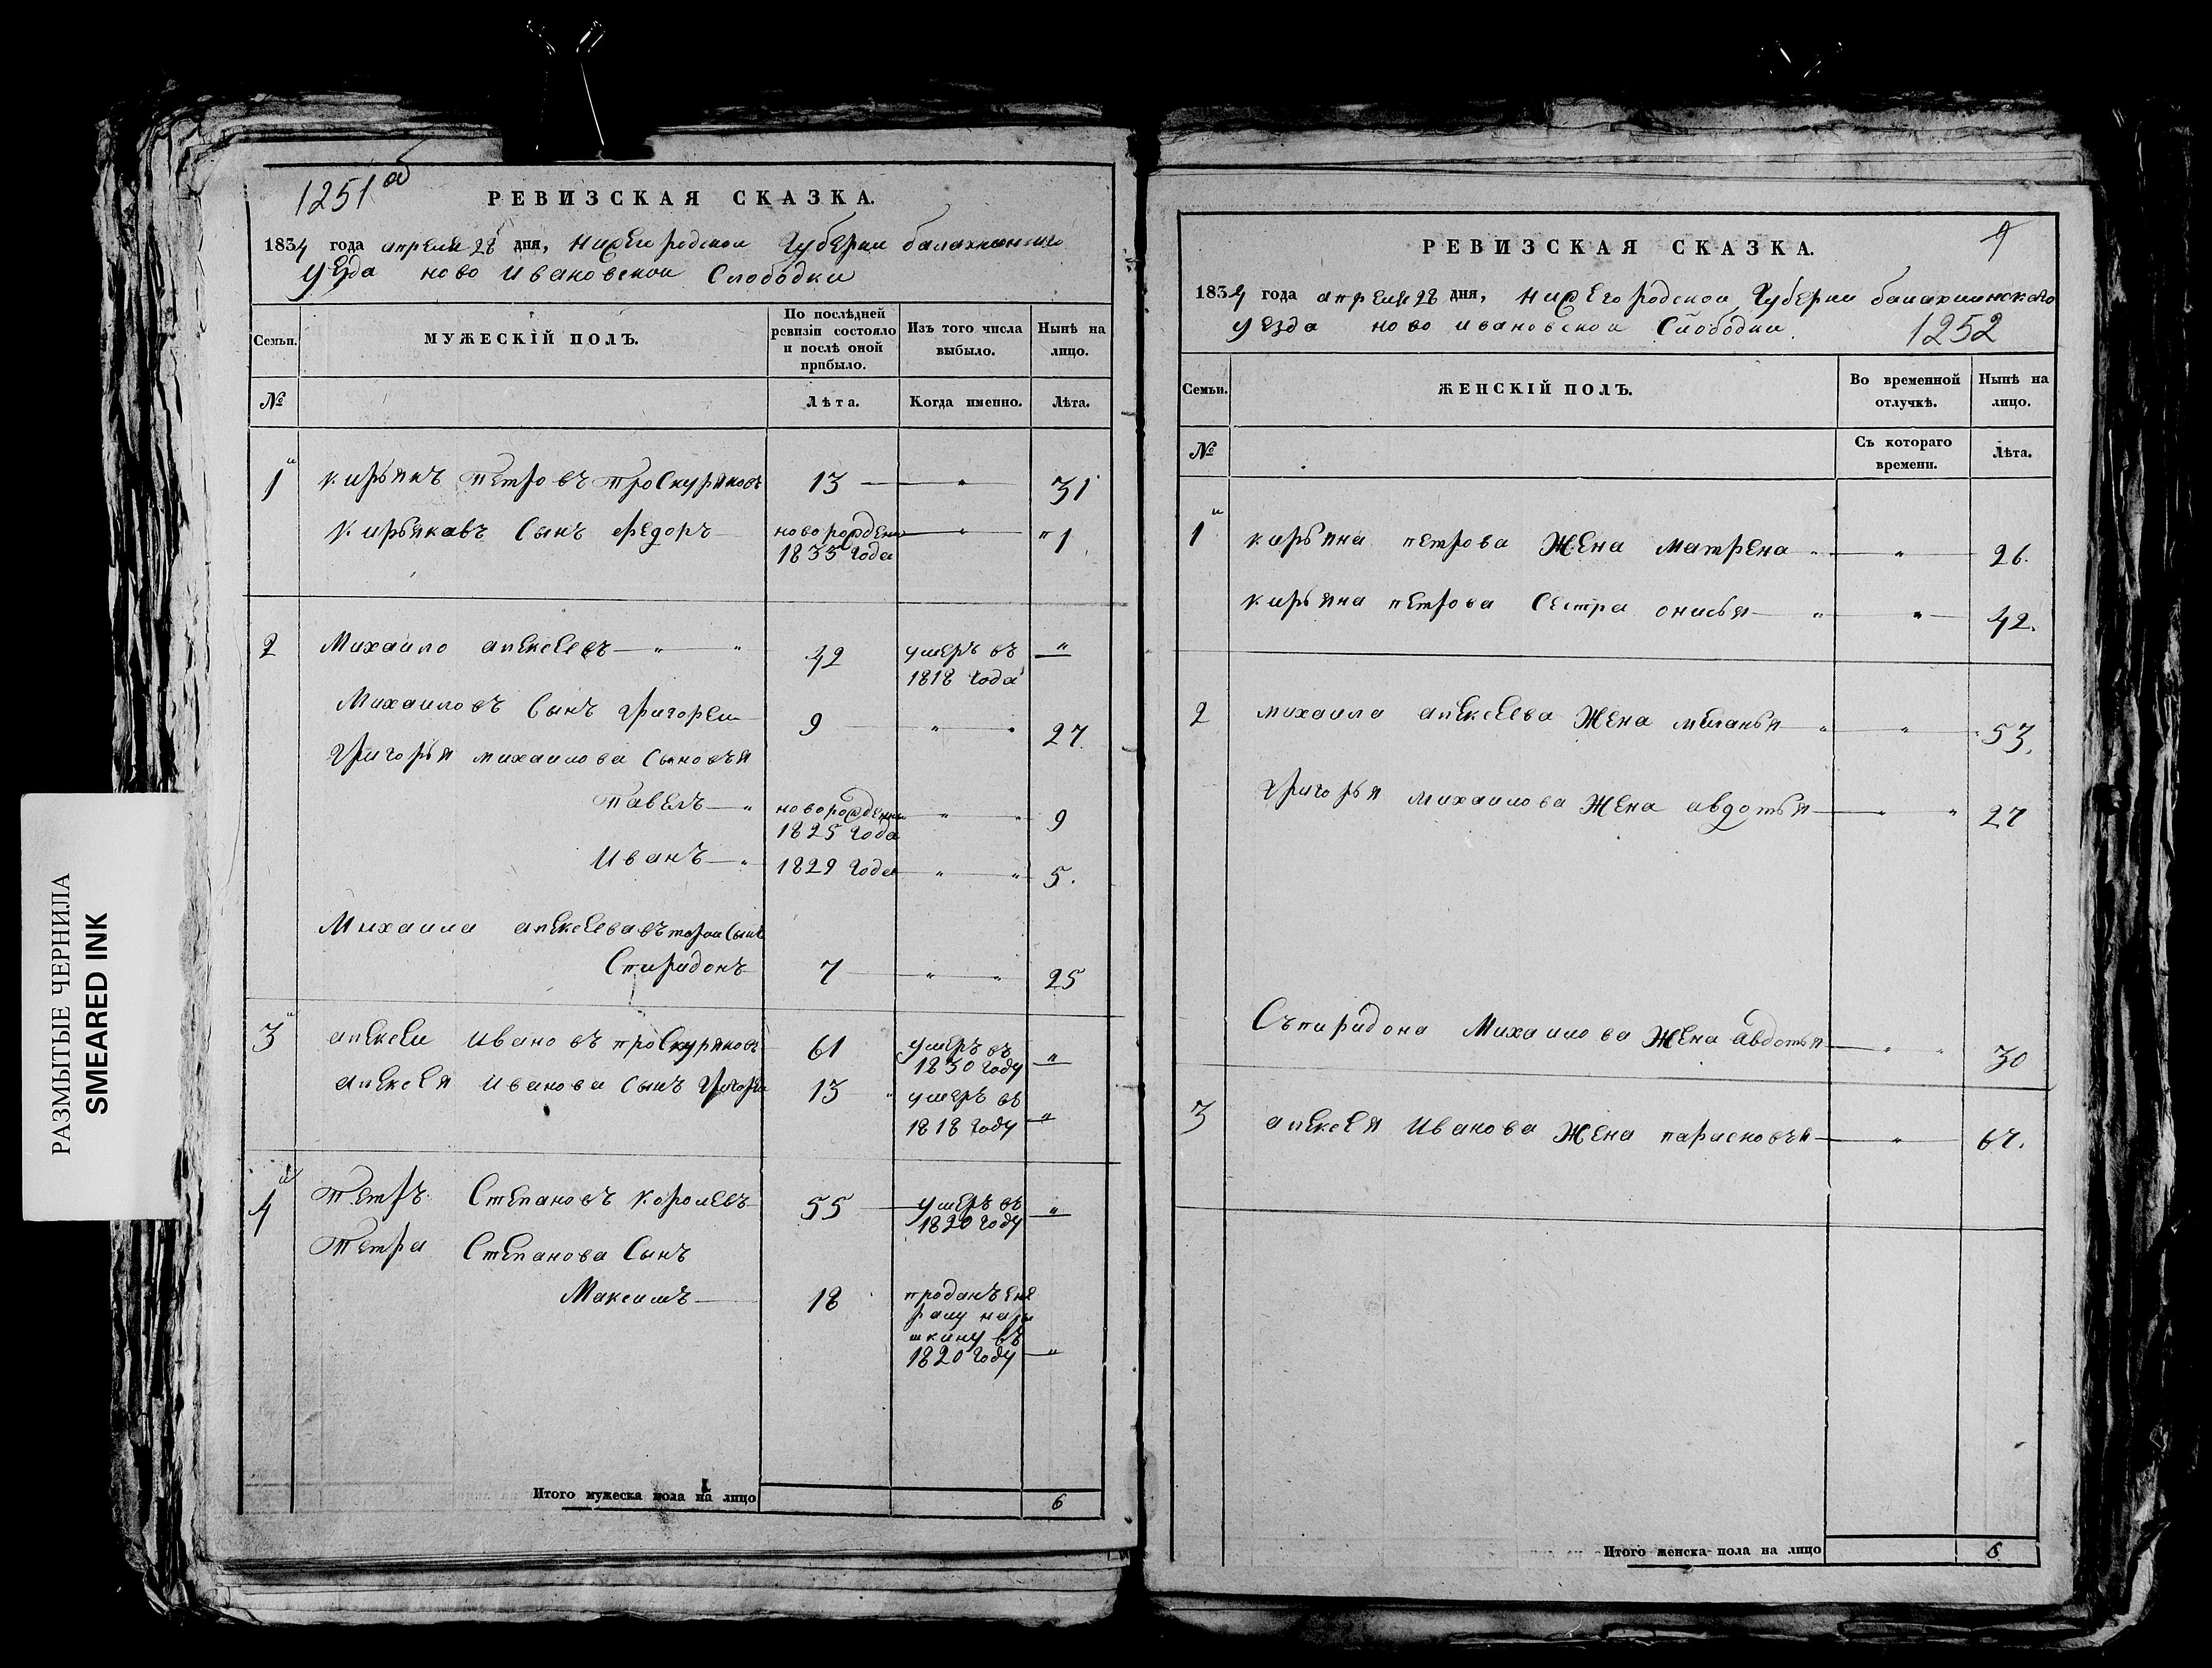 РАЗМЫТЫЕ ЧЕРНИЛА
SMEARED INK
1251 об
РЕВИЗСКАЯ СКАЗКА.
1834 года апреля 28 дня, нижегородской Губернии балахнинскаго
уезда ново ивановской Слободки
Семьи.
МУЖЕСКІЙ ПОЛЪ.
По послѣдней ревизіи состояло и послѣ оной прибыло.
Изъ того числа выбыло.
Нынѣ на лицо.
№
Лѣта.
Когда именно.
Лѣта.
1й кирьянъ петровъ проскуряковъ 13 — " — 31
Кирьяковъ Сынъ федоръ — новорожденъ — " — "1
1833 года
2 Михаило алексеевъ — " — " 42 умеръ въ "
1818 года
Михаиловъ Сынъ григореи — 9 " — " 27.
григорья михаилова Сыновья
Павелъ — " новорожденны " — " 9
1825 года
Иванъ — " 1829 года " — " 5.
Михаила алексеева второи Сынъ
Спиридонъ 7 " — " 25
3й алексеи ивановъ проскуряковъ 61 умеръ въ "
1830 году
алексея иванова Сынъ григореи 13 " умеръ въ
1818 году "
4й Петръ Степановъ королевъ 55 — умеръ въ "
1820 году
Петра Степанова Сынъ
Максимъ — 18 проданъ ене
ралу нары
шкину въ
1820 году "
Итого мужеска пола на лицо 6
РЕВИЗСКАЯ СКАЗКА.
1834 года апреля 28 дня, нижегородской Губернии балахнинскаго
уезда ново ивановской Слободки.
1252
Семьи.
ЖЕНСКІЙ ПОЛЪ.
Во временной отлучкѣ.
Нынѣ на лицо.
№
Съ котораго времени.
Лѣта.
1й кирьяна петрова Жена матрена " — " — 26.
кирьяна петрова Сестра онисья — " " — 42.
2 михаила алексеева Жена миланья — " — " — 53.
григорья михаилова Жена авдотья — " " 27
Съпиридона Михаилова Жена авдотья — " " 30
3 алексея Иванова Жена парасковья — " — 67.
Итого женска пола на лицо 6